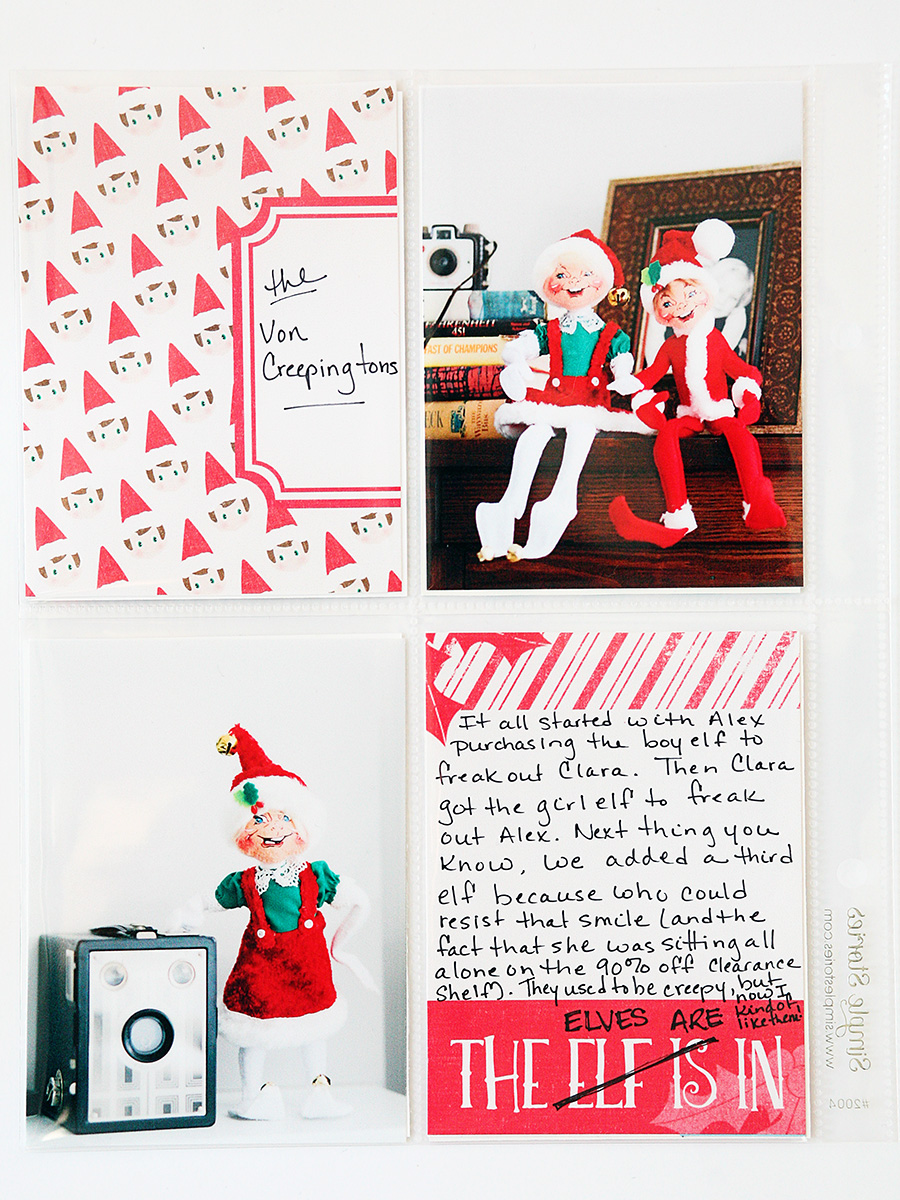 the
Von
Creepingtons
FAHRENHEIT
451
FAST OF CHAMPIONS
ECK
The
Wayward
Bus
It all started with Alex
purchasing the boy elf to
freak out Clara. Then Clara
got the girl elf to freak
out Alex. Next thing you
know, we added a third
elf because who could
resist that smile (and the
fact that she was sitting all
alone on the 90% off clearance
shelf). They used to be creepy, but
now I
kind of
like them.
ELVES ARE
THE ELF IS IN
www.simplestories.com
Simple Stories
#2004